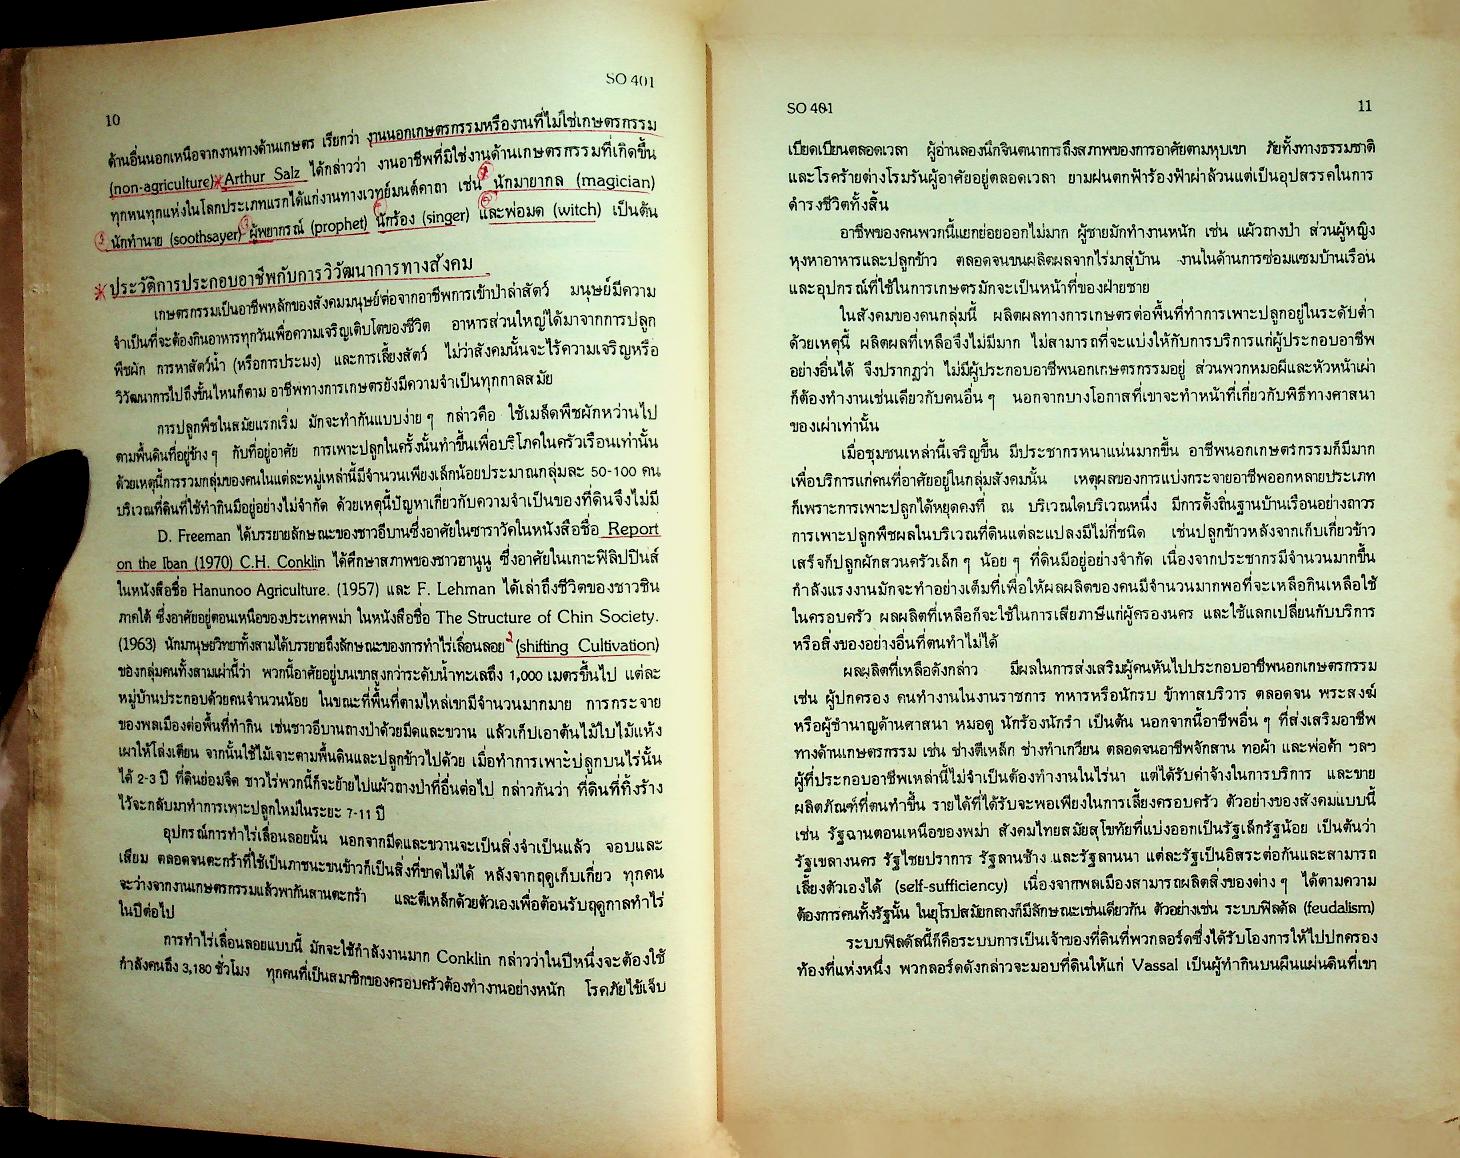 SO 401
10
ด้านอื่นนอกเหนือจากงานทางด้านเกษตร เรียกว่า งานนอกเกษตรกรรมหรืองานที่ไม่ใช่เกษตรกรรม
(non-agriculture) Arthur Salz ได้กล่าวว่า งานอาชีพที่มิใช่งานด้านเกษตรกรรมที่เกิดขึ้น
ทุกหนทุกแห่งในโลกประเภทแรกได้แก่งานทางเวทย์มนต์คาถา เช่น นักมายากล (magician)
นักทำนาย (soothsayer) ผู้พยากรณ์ (prophet) นักร้อง (singer) และพ่อมด (witch) เป็นต้น
ประวัติการประกอบอาชีพกับการวิวัฒนาการทางสังคม
เกษตรกรรมเป็นอาชีพหลักของสังคมมนุษย์ต่อจากอาชีพการเข้าป่าล่าสัตว์ มนุษย์มีความ
จำเป็นที่จะต้องกินอาหารทุกวันเพื่อความเจริญเติบโตของชีวิต อาหารส่วนใหญ่ได้มาจากการปลูก
พืชผัก การหาสัตว์น้ำ (หรือการประมง) และการเลี้ยงสัตว์ ไม่ว่าสังคมนั้นจะไร้ความเจริญหรือ
วิวัฒนาการไปถึงขั้นไหนก็ตาม อาชีพทางการเกษตรยังมีความจำเป็นทุกกาลสมัย
การปลูกพืชในสมัยแรกเริ่ม มักจะทำกันแบบง่าย ๆ กล่าวคือ ใช้เมล็ดพืชผักหว่านไป
ตามพื้นดินที่อยู่ข้าง ๆ กับที่อยู่อาศัย การเพาะปลูกในครั้งนั้นทำขึ้นเพื่อบริโภคในครัวเรือนเท่านั้น
ด้วยเหตุนี้การรวมกลุ่มของคนในแต่ละหมู่เหล่านี้มีจำนวนเพียงเล็กน้อยประมาณกลุ่มละ 50-100 คน
บริเวณที่ดินที่ใช้ทำกินมีอยู่อย่างไม่จำกัด ด้วยเหตุนี้ปัญหาเกี่ยวกับความจำเป็นของที่ดินจึงไม่มี
D. Freeman ได้บรรยายลักษณะของชาวอีบานซึ่งอาศัยในซาราวัคในหนังสือชื่อ Report
on the Iban (1970) C.H. Conklin ได้ศึกษาสภาพของชาวฮานูนู ซึ่งอาศัยในเกาะฟิลิปปินส์
ในหนังสือชื่อ Hanunoo Agriculture. (1957) และ F. Lehman ได้เล่าถึงชีวิตของชาวชิน
ภาคใต้ ซึ่งอาศัยอยู่ตอนเหนือของประเทศพม่า ในหนังสือชื่อ The Structure of Chin Society.
(1963) นักมนุษยวิทยาทั้งสามได้บรรยายถึงลักษณะของการทำไร่เลื่อนลอย (shifting Cultivation)
ของกลุ่มคนทั้งสามเผ่านี้ว่า พวกนี้อาศัยอยู่บนเขาสูงกว่าระดับน้ำทะเลถึง 1,000 เมตรขึ้นไป แต่ละ
หมู่บ้านประกอบด้วยคนจำนวนน้อย ในขณะที่พื้นที่ตามไหล่เขามีจำนวนมากมาย การกระจาย
ของพลเมืองต่อพื้นที่ทำกิน เช่นชาวอีบานถางป่าด้วยมีดและขวาน แล้วเก็บเอาต้นไม้ใบไม้แห้ง
เผาให้โล่งเตียน จากนั้นใช้ไม้เจาะตามพื้นดินและปลูกข้าวไปด้วย เมื่อทำการเพาะปลูกบนไร่นั้น
ได้ 2-3 ปี ที่ดินย่อมจืด ชาวไร่พวกนี้ก็จะย้ายไปแผ้วถางป่าที่อื่นต่อไป กล่าวกันว่า ที่ดินที่ทิ้งร้าง
ไว้จะกลับมาทำการเพาะปลูกใหม่ในระยะ 7-11 ปี
อุปกรณ์การทำไร่เลื่อนลอยนั้น นอกจากมีดและขวานจะเป็นสิ่งจำเป็นแล้ว จอบและ
เสียม ตลอดจนตะกร้าที่ใช้เป็นภาชนะขนข้าวก็เป็นสิ่งที่ขาดไม่ได้ หลังจากฤดูเก็บเกี่ยว ทุกคน
จะว่างจากงานเกษตรกรรมแล้วพากันสานตะกร้า และตีเหล็กด้วยตัวเองเพื่อต้อนรับฤดูกาลทำไร่
ในปีต่อไป
การทำไร่เลื่อนลอยแบบนี้ มักจะใช้กำลังงานมาก Conklin กล่าวว่าในปีหนึ่งจะต้องใช้
กำลังคนถึง 3,180 ชั่วโมง ทุกคนที่เป็นสมาชิกของครอบครัวต้องทำงานอย่างหนัก โรคภัยไข้เจ็บ
SO 401
11
เบียดเบียนตลอดเวลา ผู้อ่านลองนึกจินตนาการถึงสภาพของการอาศัยตามหุบเขา ภัยทั้งทางธรรมชาติ
และโรคร้ายต่างโรมรันผู้อาศัยอยู่ตลอดเวลา ยามฝนตกฟ้าร้องฟ้าผ่าล้วนแต่เป็นอุปสรรคในการ
ดำรงชีวิตทั้งสิ้น
อาชีพของคนพวกนี้แยกย่อยออกไม่มาก ผู้ชายมักทำงานหนัก เช่น แผ้วถางป่า ส่วนผู้หญิง
หุงหาอาหารและปลูกข้าว ตลอดจนขนผลิตผลจากไร่มาสู่บ้าน งานในด้านการซ่อมแซมบ้านเรือน
และอุปกรณ์ที่ใช้ในการเกษตรมักจะเป็นหน้าที่ของฝ่ายชาย
ในสังคมของคนกลุ่มนี้ ผลิตผลทางการเกษตรต่อพื้นที่ทำการเพาะปลูกอยู่ในระดับต่ำ
ด้วยเหตุนี้ ผลิตผลที่เหลือจึงไม่มีมาก ไม่สามารถที่จะแบ่งให้กับการบริการแก่ผู้ประกอบอาชีพ
อย่างอื่นได้ จึงปรากฏว่า ไม่มีผู้ประกอบอาชีพนอกเกษตรกรรมอยู่ ส่วนพวกหมอผีและหัวหน้าเผ่า
ก็ต้องทำงานเช่นเดียวกับคนอื่น ๆ นอกจากบางโอกาสที่เขาจะทำหน้าที่เกี่ยวกับพิธีทางศาสนา
ของเผ่าเท่านั้น
เมื่อชุมชนเหล่านี้เจริญขึ้น มีประชากรหนาแน่นมากขึ้น อาชีพนอกเกษตรกรรมก็มีมาก
เพื่อบริการแก่คนที่อาศัยอยู่ในกลุ่มสังคมนั้น เหตุผลของการแบ่งกระจายอาชีพออกหลายประเภท
ก็เพราะการเพาะปลูกได้หยุดคงที่ ณ บริเวณใดบริเวณหนึ่ง มีการตั้งถิ่นฐานบ้านเรือนอย่างถาวร
การเพาะปลูกพืชผลในบริเวณที่ดินแต่ละแปลงมีไม่กี่ชนิด เช่นปลูกข้าวหลังจากเก็บเกี่ยวข้าว
เสร็จก็ปลูกผักสวนครัวเล็ก ๆ น้อย ๆ ที่ดินมีอยู่อย่างจำกัด เนื่องจากประชากรมีจำนวนมากขึ้น
กำลังแรงงานมักจะทำอย่างเต็มที่เพื่อให้ผลผลิตของคนมีจำนวนมากพอที่จะเหลือกินเหลือใช้
ในครอบครัว ผลผลิตที่เหลือก็จะใช้ในการเสียภาษีแก่ผู้ครองนคร และใช้แลกเปลี่ยนกับบริการ
หรือสิ่งของอย่างอื่นที่ตนทำไม่ได้
ผลผลิตที่เหลือดังกล่าว มีผลในการส่งเสริมผู้คนหันไปประกอบอาชีพนอกเกษตรกรรม
เช่น ผู้ปกครอง คนทำงานในงานราชการ ทหารหรือนักรบ ข้าทาสบริวาร ตลอดจน พระสงฆ์
หรือผู้ชำนาญด้านศาสนา หมอดู นักร้องนักรำ เป็นต้น นอกจากนี้อาชีพอื่น ๆ ที่ส่งเสริมอาชีพ
ทางด้านเกษตรกรรม เช่น ช่างตีเหล็ก ช่างทำเกวียน ตลอดจนอาชีพจักสาน ทอผ้า และพ่อค้า ฯลฯ
ผู้ที่ประกอบอาชีพเหล่านี้ไม่จำเป็นต้องทำงานในไร่นา แต่ได้รับค่าจ้างในการบริการ และขาย
ผลิตภัณฑ์ที่ตนทำขึ้น รายได้ที่ได้รับจะพอเพียงในการเลี้ยงครอบครัว ตัวอย่างของสังคมแบบนี้
เช่น รัฐฉานตอนเหนือของพม่า สังคมไทยสมัยสุโขทัยที่แบ่งออกเป็นรัฐเล็กรัฐน้อย เป็นต้นว่า
รัฐเขลางนคร รัฐไชยปราการ รัฐลานช้าง และรัฐลานนา แต่ละรัฐเป็นอิสระต่อกันและสามารถ
เลี้ยงตัวเองได้ (self-sufficiency) เนื่องจากพลเมืองสามารถผลิตสิ่งของต่าง ๆ ได้ตามความ
ต้องการคนทั้งรัฐนั้น ในยุโรปสมัยกลางก็มีลักษณะเช่นเดียวกัน ตัวอย่างเช่น ระบบฟิลดัล (feudalism)
ระบบฟิลดัลนี้ก็คือระบบการเป็นเจ้าของที่ดินที่พวกลอร์ดซึ่งได้รับโองการให้ไปปกครอง
ท้องที่แห่งหนึ่ง พวกลอร์ดดังกล่าวจะมอบที่ดินให้แก่ Vassal เป็นผู้ทำกินบนผืนแผ่นดินที่เขา